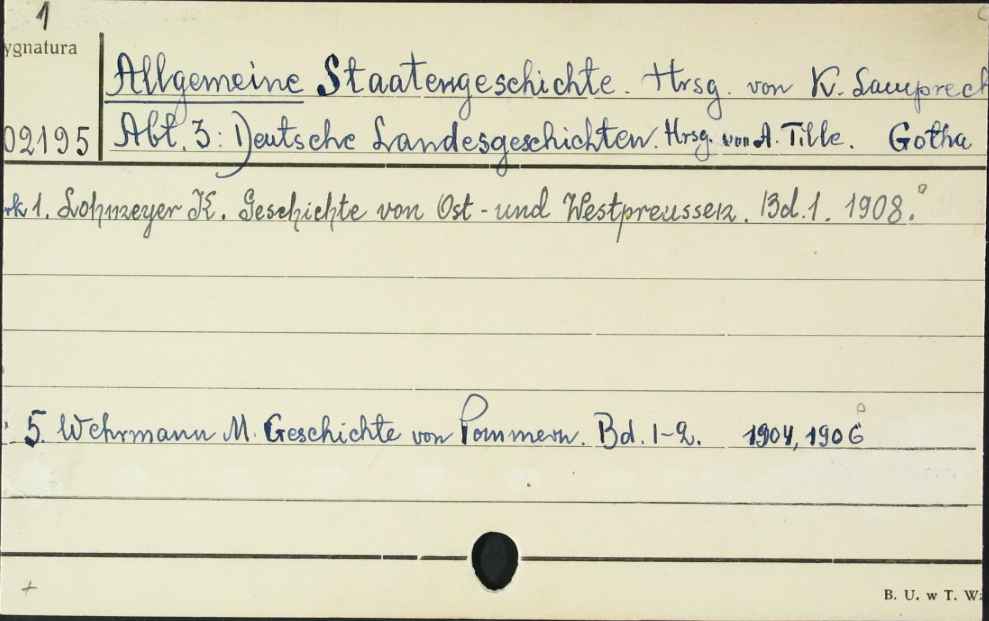 1
ygnatura
Allgemeine Staatengeschichte. Hrsg. von K. Lamprech
02195 Abt. 3: Deutsche Landesgeschichten. Hrsg. von A. Tille. Gotha
rk 1. Lohmeyer K. Geschichte von Ost- und Westpreussen. Bd. 1. 1908.
5. Wehrmann M. Geschichte von Pommern. Bd. 1-2. 1904, 1906
+
B. U. w T. W